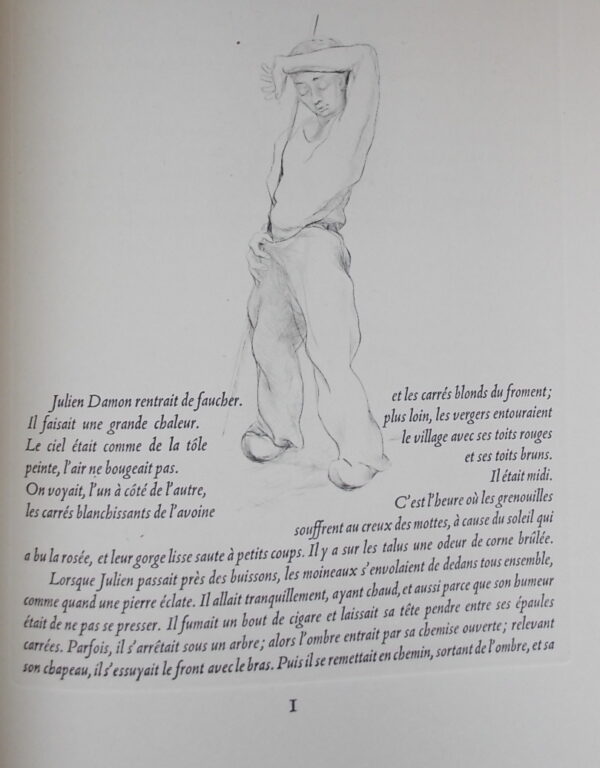 Julien Damon rentrait de faucher.
Il faisait une grande chaleur.
Le ciel était comme de la tôle
peinte, l'air ne bougeait pas.
On voyait, l'un à côté de l'autre,
les carrés blanchissants de l'avoine
et les carrés blonds du froment;
plus loin, les vergers entouraient
le village avec ses toits rouges
et ses toits bruns.
Il était midi.
C'est l'heure où les grenouilles
souffrent au creux des mottes, à cause du soleil qui
a bu la rosée, et leur gorge lisse saute à petits coups. Il y a sur les talus une odeur de corne brûlée.
Lorsque Julien passait près des buissons, les moineaux s'envolaient de dedans tous ensemble,
comme quand une pierre éclate. Il allait tranquillement, ayant chaud, et aussi parce que son humeur
était de ne pas se presser. Il fumait un bout de cigare et laissait sa tête pendre entre ses épaules
carrées. Parfois, il s'arrêtait sous un arbre; alors l'ombre entrait par sa chemise ouverte; relevant
son chapeau, il s'essuyait le front avec le bras. Puis il se remettait en chemin, sortant de l'ombre, et sa
1